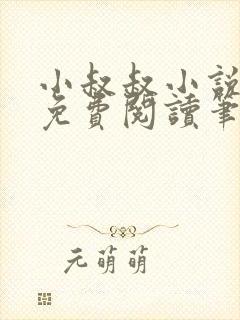 小叔叔小說
免費閱讀筆
元萌萌